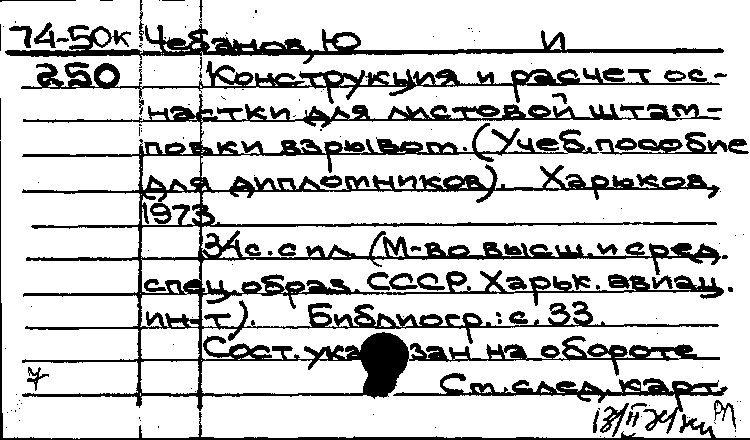 74-50к Чебанов, Ю И
250 Конструкция и расчет ос-
настки для листовой штам-
повки взрывом. (Учеб. пособие
для дипломников). Харьков,
1973.
34 с. с ил. (М-во высш. и сред.
спец. образ. СССР. Харьк. авиац.
ин-т). Библиогр.: с. 33.
Сост. указан на обороте
См. след. карт.